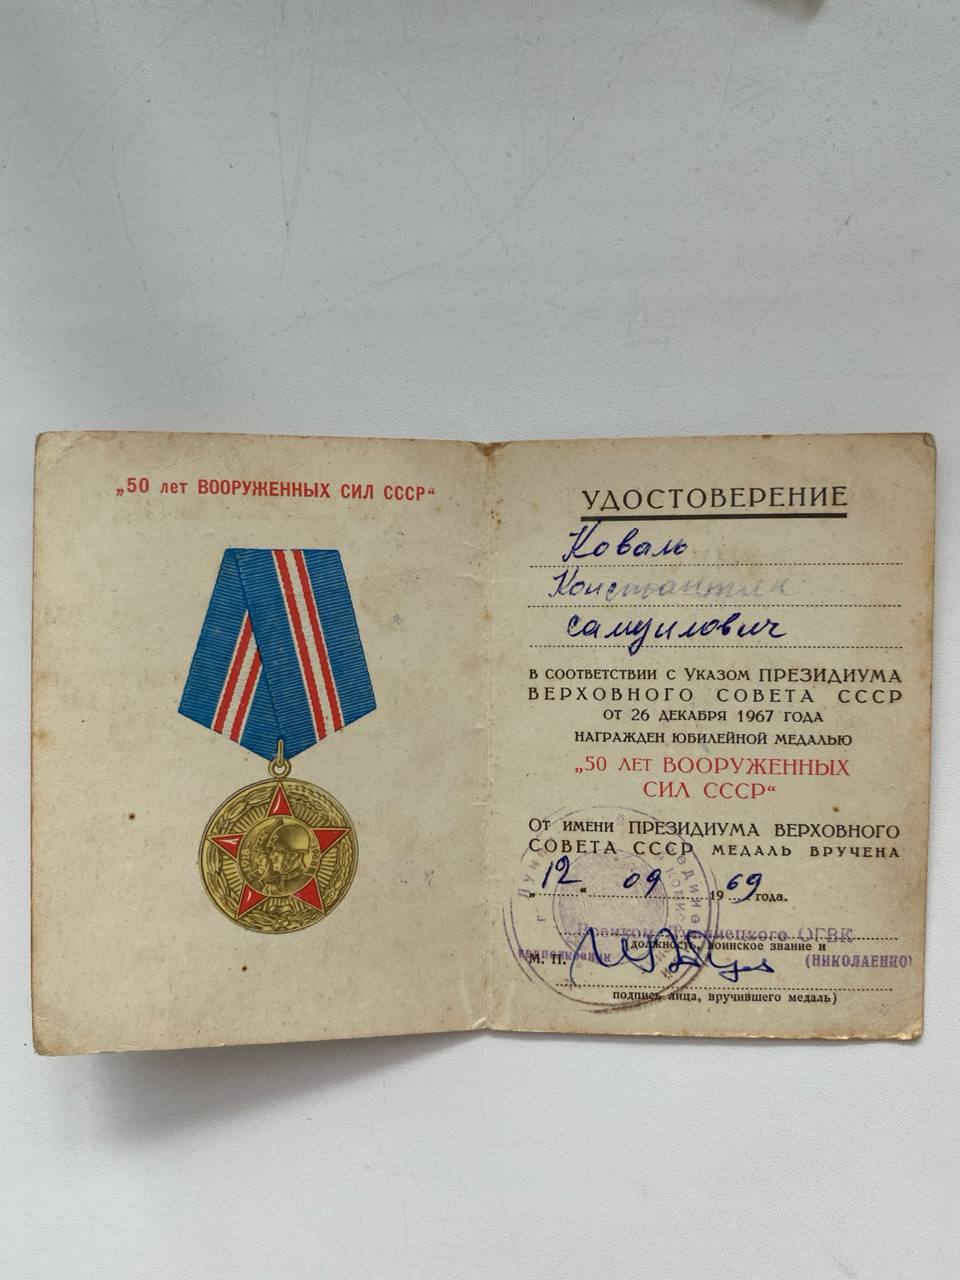 „50 лет ВООРУЖЕННЫХ СИЛ СССР“
УДОСТОВЕРЕНИЕ
Коваль
Константин
Самуилович
В СООТВЕТСТВИИ С УКАЗОМ ПРЕЗИДИУМА
ВЕРХОВНОГО СОВЕТА СССР
ОТ 26 ДЕКАБРЯ 1967 ГОДА
НАГРАЖДЕН ЮБИЛЕЙНОЙ МЕДАЛЬЮ
„50 ЛЕТ ВООРУЖЕННЫХ
СИЛ СССР“
ОТ ИМЕНИ ПРЕЗИДИУМА ВЕРХОВНОГО
СОВЕТА СССР МЕДАЛЬ ВРУЧЕНА
„12“ 09 1969 года.
ОГВК
(должность, воинское звание и
М. П. (НИКОЛАЕНКО)
подпись лица, вручившего медаль)